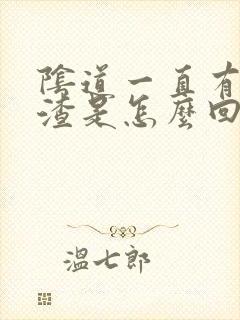 陰道一直有
渣是怎麼回
溫七郎